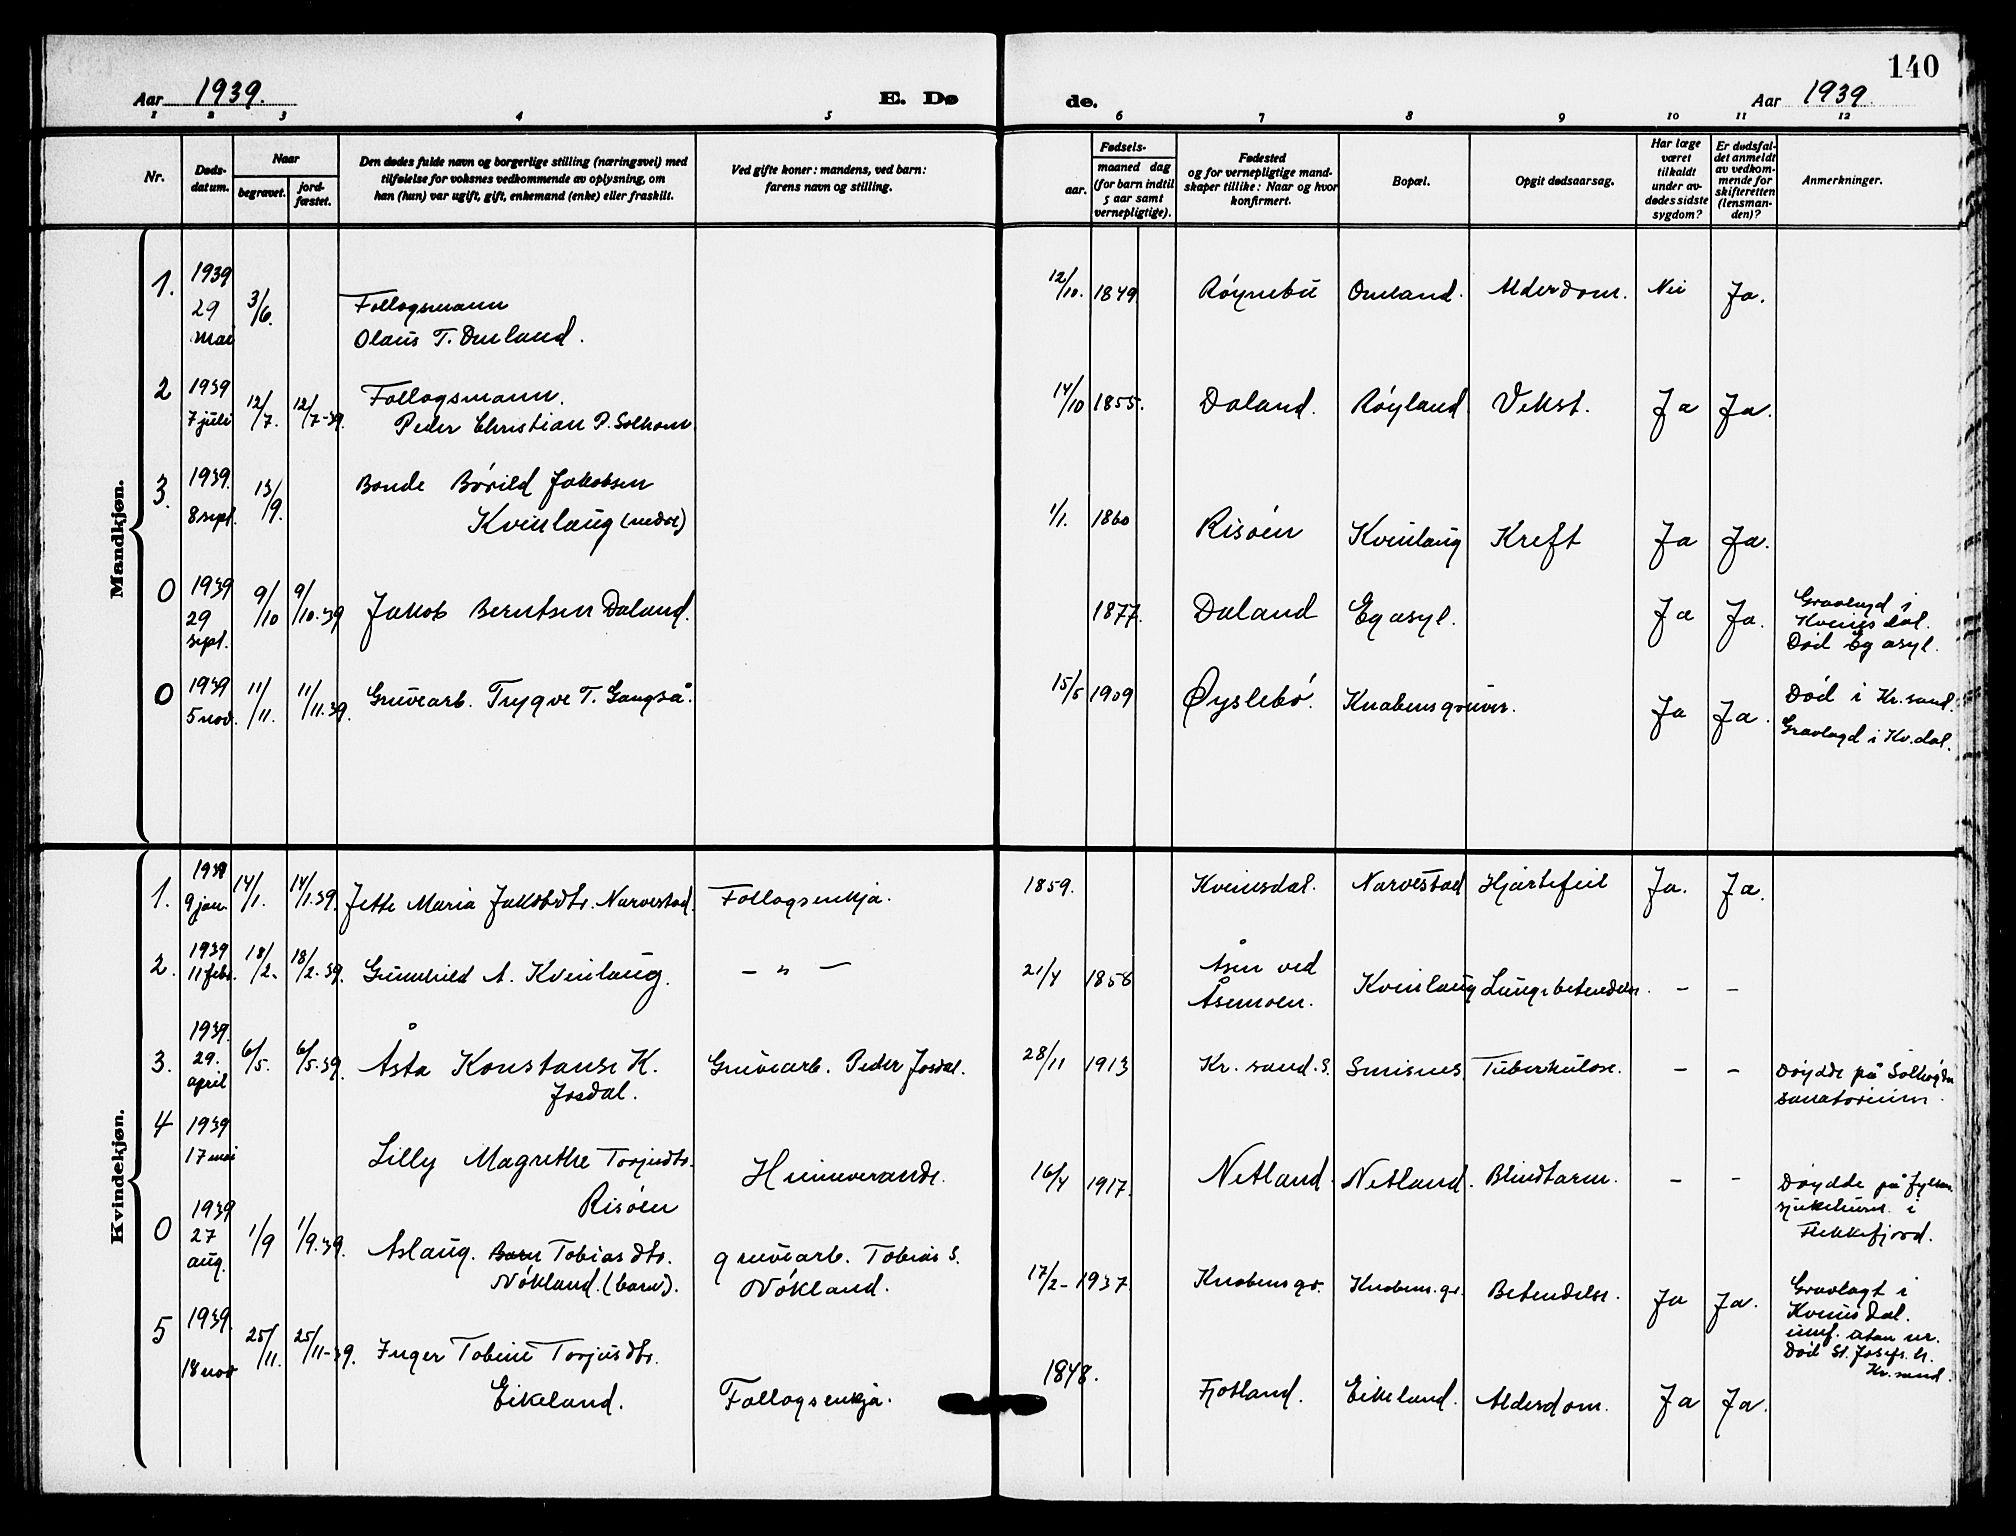 140
Aar 1939.
E. Dø
de.
Aar 1939.
1 2 3 4 5 6 7 8 9 10 11 12
Nr.
Døds-
datum.
Naar
begravet.
jord-
fæstet.
Den dødes fulde navn og borgerlige stilling (næringsvei) med
tilføielse for voksnes vedkommende av oplysning, om
han (hun) var ugift, gift, enkemand (enke) eller fraskilt.
Ved gifte koner: mandens, ved barn:
farens navn og stilling.
Fødsels-
aar.
maaned dag
(for barn indtil
5 aar samt
vernepligtige).
Fødested
og for vernepligtige mand-
skaper tillike: Naar og hvor
konfirmert.
Bopæl.
Opgit dødsaarsag.
Har læge
været
tilkaldt
under av-
dødes sidste
sygdom?
Er dødsfal-
det anmeldt
av vedkom-
mende for
skifteretten
(lensman-
den)?
Anmerkninger.
Mandkjøn.
1. 1939 29 mai 3/6. Follogsmann
Olaus T. Omland. 12/10. 1849 Røynebu Omland. Alderdom. Nei Ja.
2 1939 7 juli 12/7. 12/7-39. Follogsmann.
Peder Christian P. Solhom 14/10 1855. Daland. Røyland Vekst. Ja Ja.
3. 1939. 8 sept. 13/9. Bonde Børild Jakobsen
Kvinlaug (nedre) 1/1. 1860 Risøen Kvinlaug Kreft Ja Ja.
0 1939 29 sept. 9/10 9/10.39 Jakob Berntsen Daland. 1877. Daland Eg asyl. Ja Ja.
Gravlagd i
Kvinesdal.
Død Eg asyl.
0 1939 5 nov. 11/11. 11/11.39. Gruvearb. Trygve T. Gangså. 15/5 1909 Øyslebø. Knabens gruver. Ja Ja.
Død i Kr.sand.
Gravlagd i Kv.dal.
Kvindekjøn.
1. 1939 9 jan. 14/1. 14/1.39. Jette Maria Jakobdtr. Narvestad. Follogsenkja. 1859. Kvinesdal. Narvestad Hjartefeil Ja. Ja.
2. 1939 11 febr. 18/2. 18/2.39. Gunnhild A. Kvinlaug. — " — 21/4 1858 Åsen ved
Åsenmoen. Kvinlaug Lungebetendelse. – –
3. 1939. 29. april 6/5. 6/5.39. Åsta Konstanse K.
Josdal. Gruvearb. Peder Josdal. 28/11 1913 Kr.sand.S. Smisnes. Tuberkulose. – –
Døydde på Solhøgda
sanatorium.
4 1939 17 mai Lilly Magrethe Torjusdtr.
Risøen Heimeverande. 16/4 1917. Netland. Netland. Blindtarm. – –
Døydde på fylkes
sjukehuset i
Flekkefjord.
0 1939 27 aug. 1/9 1/9.39. Aslaug. Barn Tobiasdtr.
Nøkland. (barn). gruvearb. Tobias S.
Nøkland. 17/2- 1937. Knabens gr. Knabens.gr. Betendelse. Ja Ja.
Gravlagt i
Kvinesdal.
innf. utan nr.
Død St. Josefs h.
Kr.sand.
5 1939. 18 nov 25/11. 25/11-39. Inger Tobine Torjusdtr.
Eikeland. Follogsenkja. 1848. Fjotland. Eikeland. Alderdom. Ja Ja.